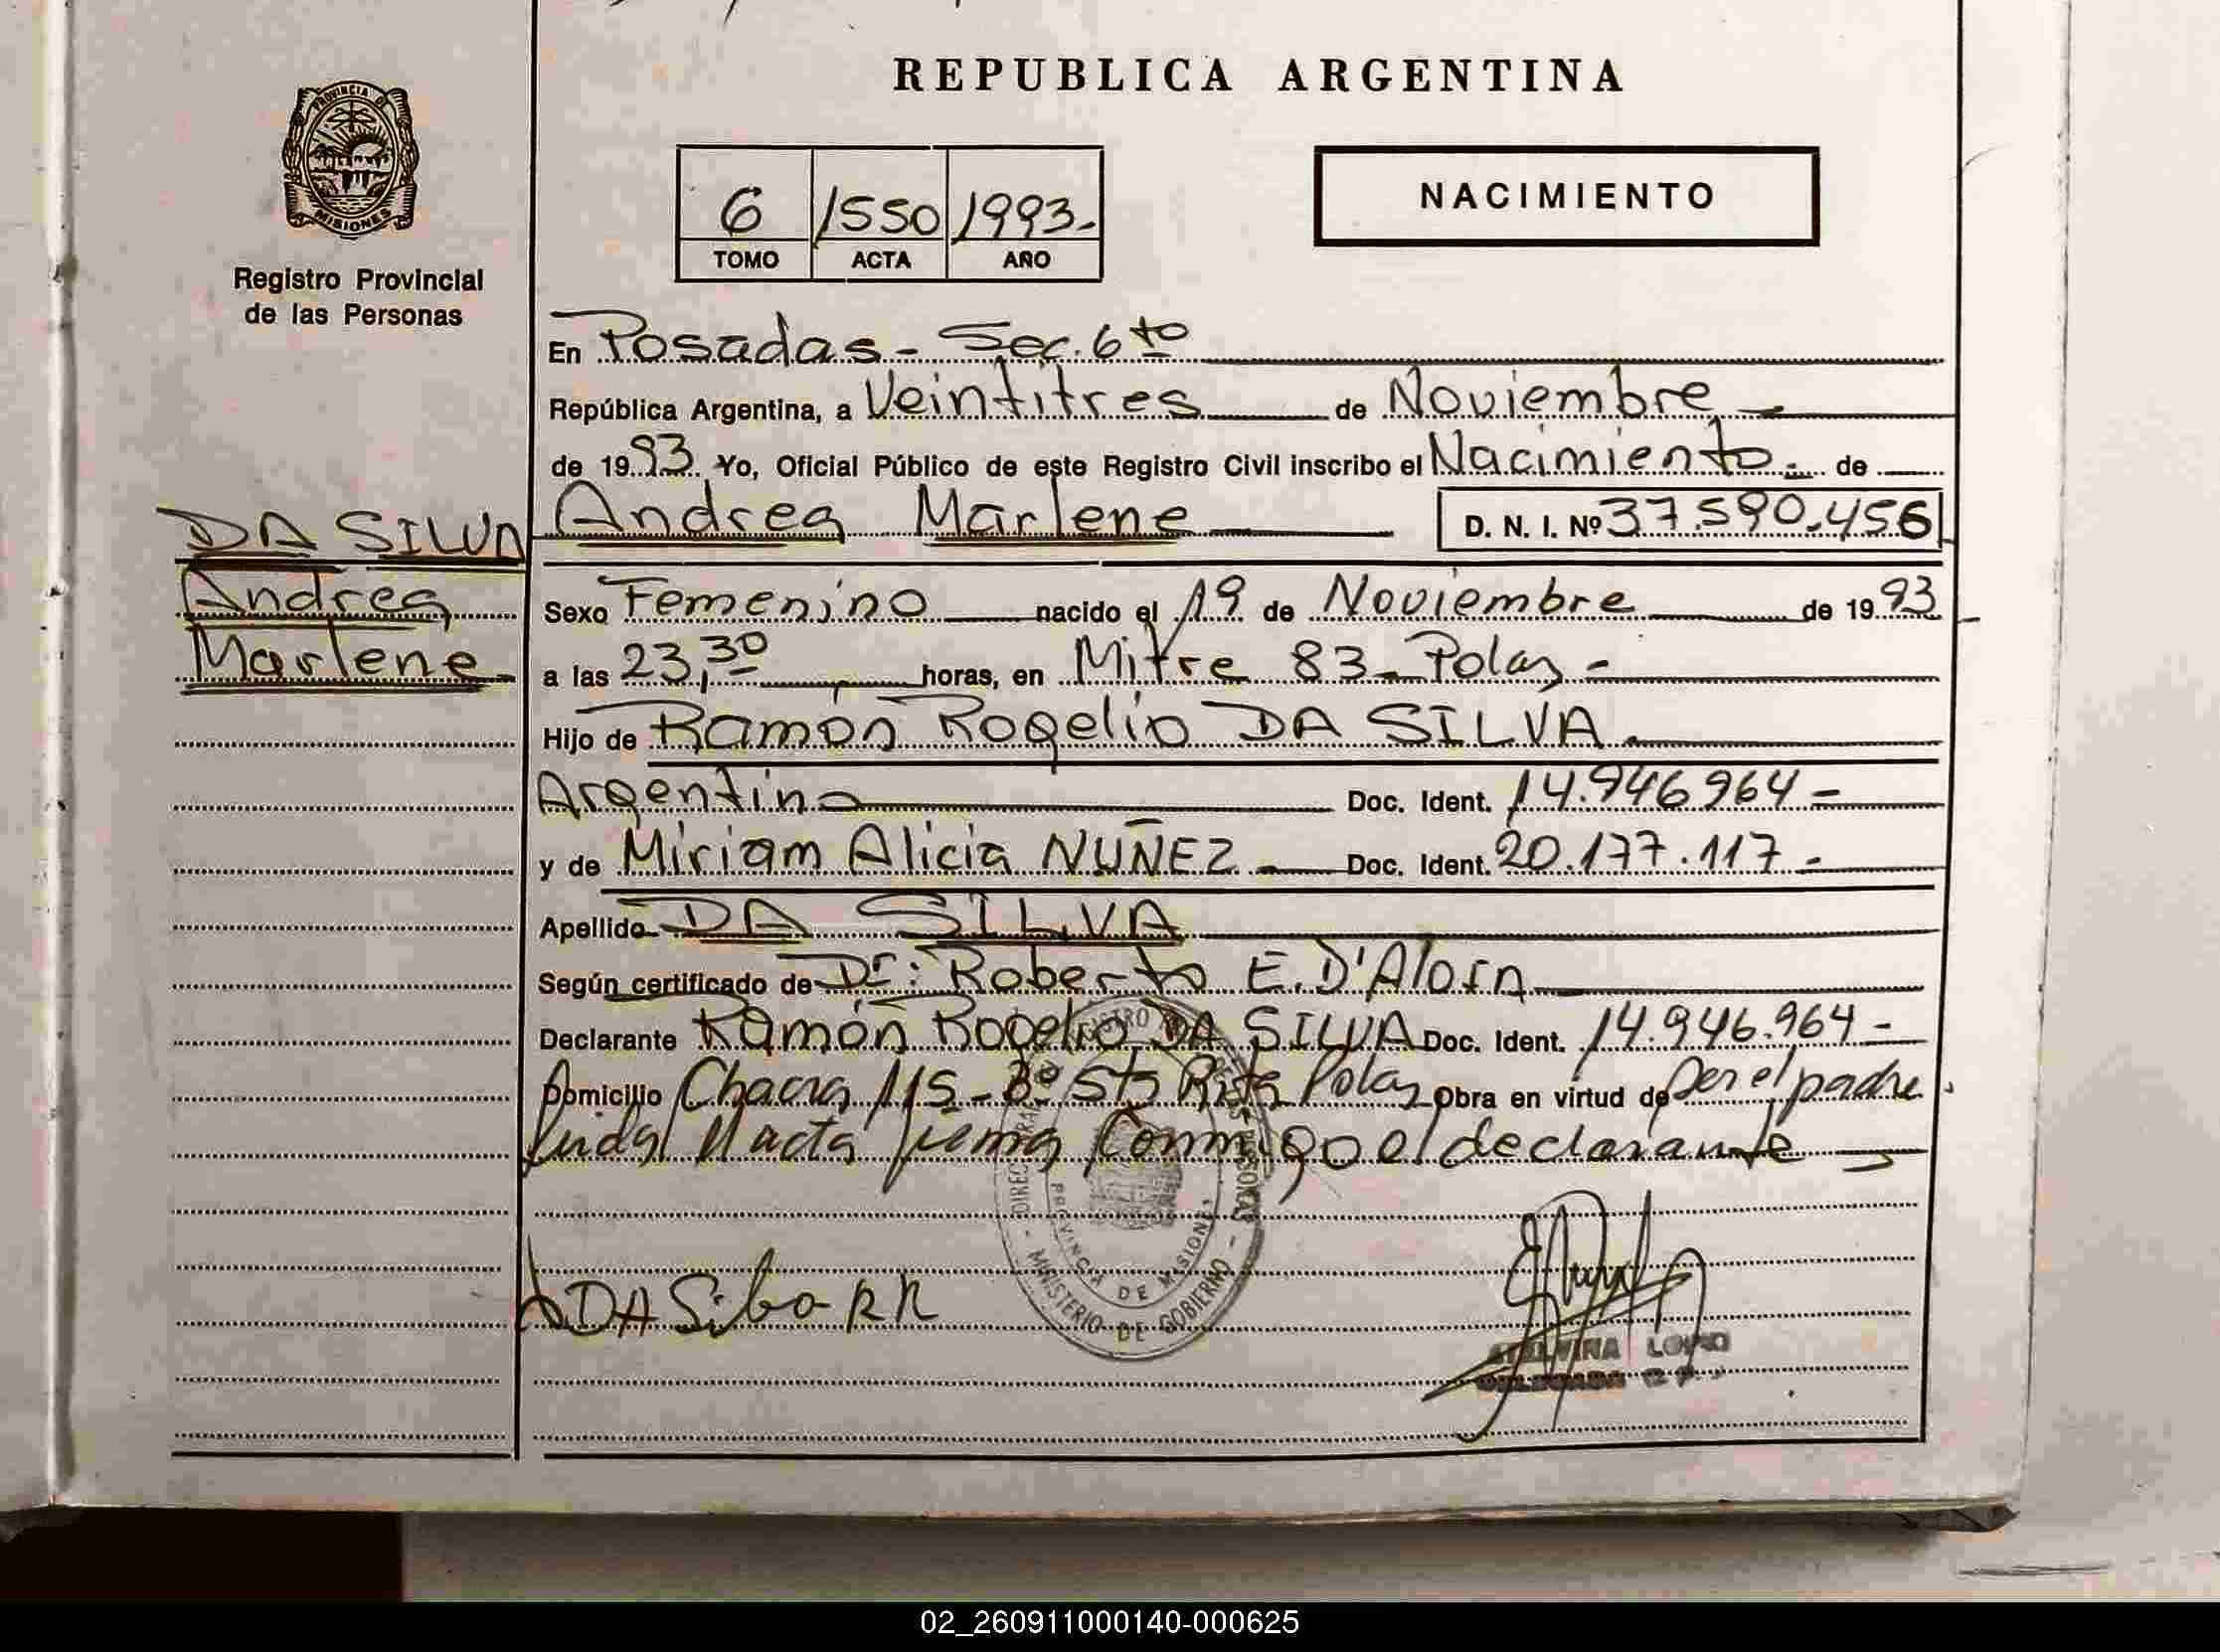 REPUBLICA ARGENTINA
PROVINCIA DE
MISIONES
Registro Provincial
de las Personas
6 1550 1993.-
TOMO ACTA AÑO
NACIMIENTO
En Posadas - Sec. 6to
República Argentina, a Veintitres de Noviembre
de 1993. Yo, Oficial Público de este Registro Civil inscribo el Nacimiento.- de
DA SILVA
Andrea
Marlene
Andrea Marlene D. N. I. Nº 37.590.456
Sexo Femenino nacido el 19 de Noviembre de 1993
a las 23,30 horas, en Mitre 83 - Pdas -
Hijo de Ramón Rogelio DA SILVA
Argentino Doc. Ident. 14.946964 -
y de Miriam Alicia NUÑEZ.- Doc. Ident. 20.177.117.-
Apellido DA SILVA
Según certificado de Dr: Roberto E. D'
Declarante Ramón Rogelio DA SILVA Doc. Ident. 14.946.964 -
Domicilio Chacra 115 - Bº Sta Rita Pdas Obra en virtud de ser el padre.
Leída el acta firma conmigo el declarante
PROVINCIA DE MISIONES
MINISTERIO DE GOBIERNO
DA Silva R R
02_260911000140-000625